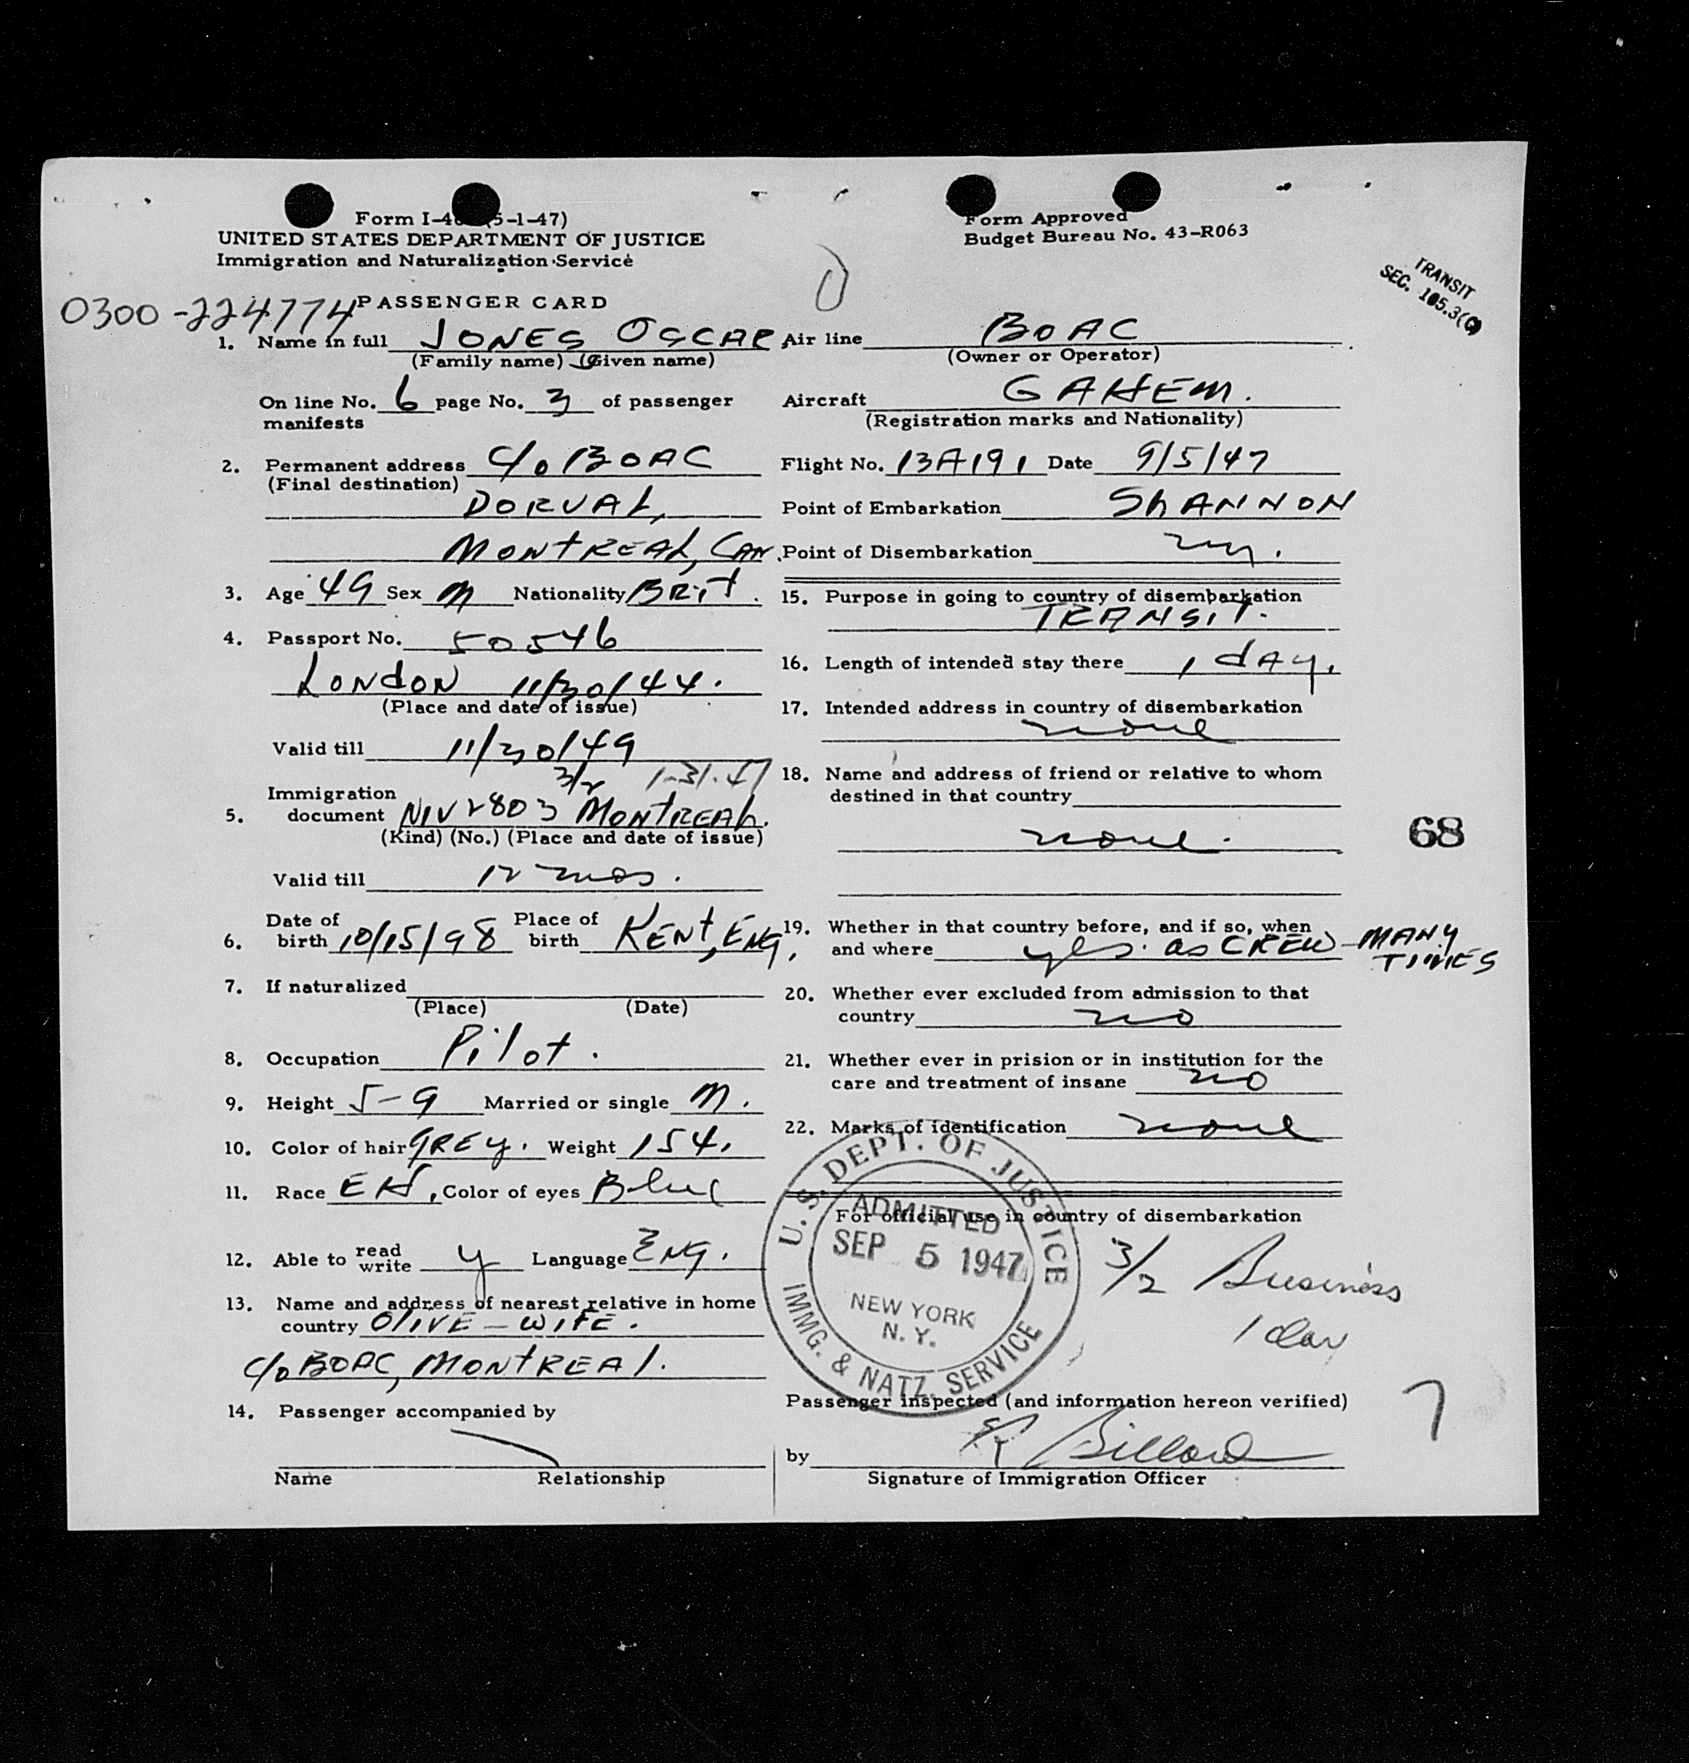 Form I-4 (5-1-47)
UNITED STATES DEPARTMENT OF JUSTICE
Immigration and Naturalization Service
Form Approved
Budget Bureau No. 43-R063
TRANSIT
SEC. 105.3(C)
0300-224774 PASSENGER CARD
1. Name in full JONES OSCAR
(Family name) (Given name)
On line No. 6 page No. 3 of passenger
manifests
2. Permanent address C/o BOAC
(Final destination)
DORVAL,
MONTREAL, CAN.
3. Age 49 Sex M Nationality BRIT.
4. Passport No. 50546
LONDON 11/30/44.
(Place and date of issue)
Valid till 11/30/49
3/2 1-31-47
Immigration
5. document NIV 2803 MONTREAL.
(Kind) (No.) (Place and date of issue)
Valid till 12 mos.
Date of Place of
6. birth 10/15/98 birth KENT, ENG.
7. If naturalized
(Place) (Date)
8. Occupation Pilot.
9. Height 5-9 Married or single M.
10. Color of hair GREY. Weight 154.
11. Race EN. Color of eyes Blue
12. Able to read write y Language ENG.
13. Name and address of nearest relative in home
country OLIVE - WIFE.
C/o BOAC, MONTREAL.
14. Passenger accompanied by
Name Relationship
Air line BOAC
(Owner or Operator)
Aircraft GAHEM.
(Registration marks and Nationality)
Flight No. BA191 Date 9/5/47
Point of Embarkation ShANNON
Point of Disembarkation ny.
15. Purpose in going to country of disembarkation
TRANSIT.
16. Length of intended stay there 1 day.
17. Intended address in country of disembarkation
none
18. Name and address of friend or relative to whom
destined in that country
none.
68
19. Whether in that country before, and if so, when
and where yes. as CREW - MANY
TIMES
20. Whether ever excluded from admission to that
country no
21. Whether ever in prision or in institution for the
care and treatment of insane no
22. Marks of Identification none
For official use in country of disembarkation
U.S. DEPT. OF JUSTICE
ADMITTED
SEP 5 1947
NEW YORK
N. Y.
IMMG. & NATZ. SERVICE
3/2 Business
1 day
7
Passenger inspected (and information hereon verified)
by R Billard
Signature of Immigration Officer